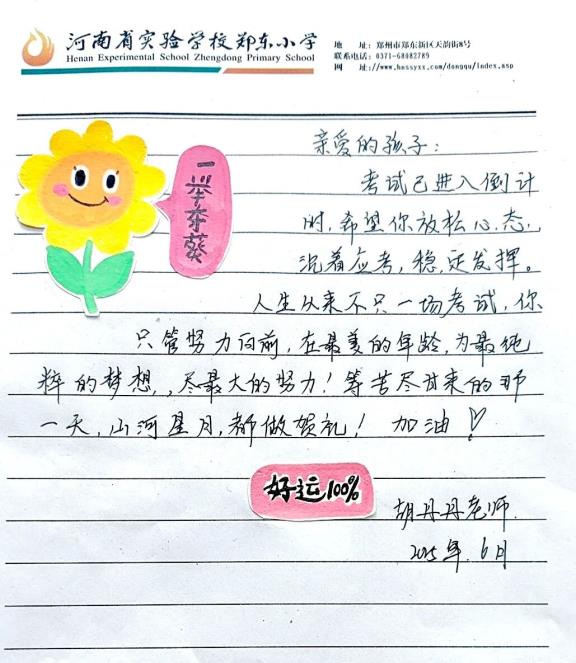 河南省实验学校郑东小学
Henan Experimental School Zhengdong Primary School
地 址：郑州市郑东新区天韵街8号
联系电话：0371-68082789
网 址：//www.hnssyxx.com/dongqu/index.asp
一举夺葵
亲爱的孩子：
考试已进入倒计
时，希望你放松心态，
沉着应考，稳定发挥。
人生从来不只一场考试，你
只管努力向前，在最美的年龄，为最纯
粹的梦想，尽最大的努力！等苦尽甘来的那
一天，山河星月，都做贺礼！ 加油！
好运100%
胡丹丹老师
2025年.6月